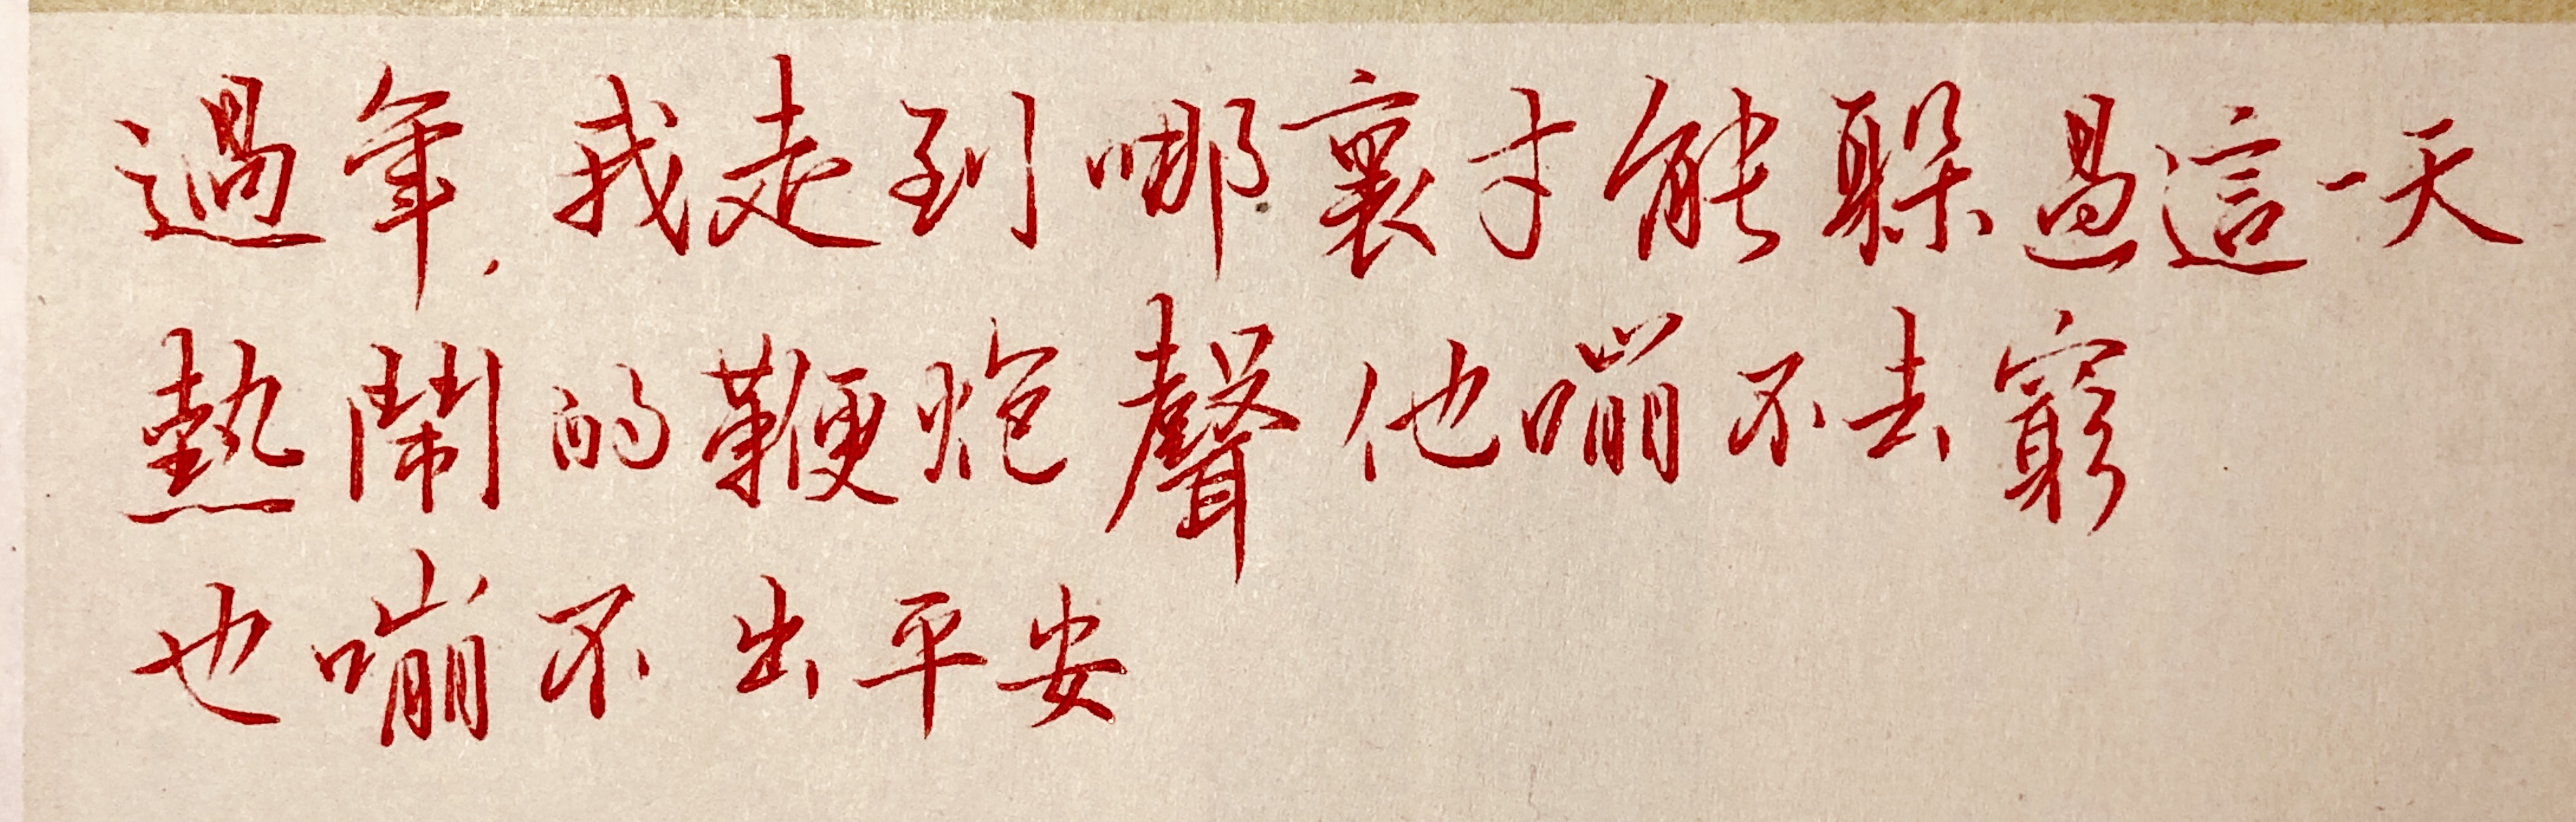 過年,我走到哪裏才能躲過這一天
熱鬧的鞭炮聲他嘣不去窮
也嘣不出平安